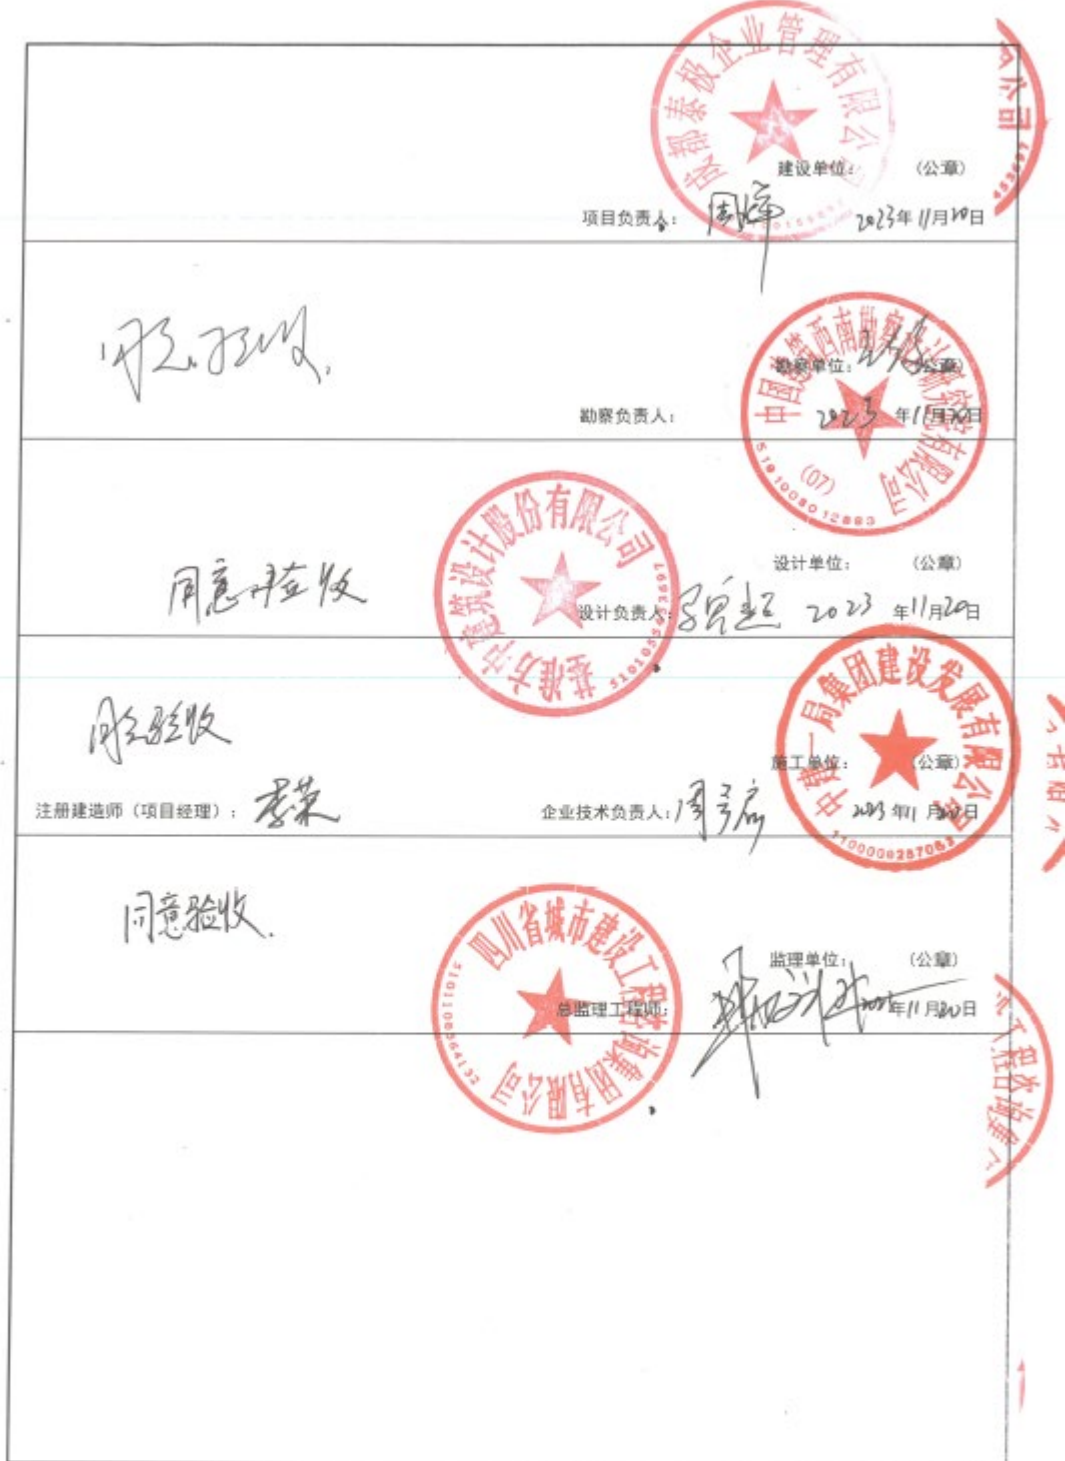 成都泰极企业管理有限公司
建设单位： （公章）
项目负责人： 2023年11月20日
同意验收.
中国建筑西南勘察设计研究院有限公司
勘察单位： （公章）
勘察负责人： 2023年11月20日
(07)
5101008012883
基准方中建筑设计股份有限公司
设计单位： （公章）
同意验收
设计负责人： 2023年11月20日
同意验收
中建一局集团建设发展有限公司
施工单位： （公章）
注册建造师（项目经理）： 李荣 企业技术负责人： 2023年11月20日
1100000287082
同意验收.
四川省城市建设工程咨询集团有限公司
监理单位： （公章）
总监理工程师： 2023年11月20日